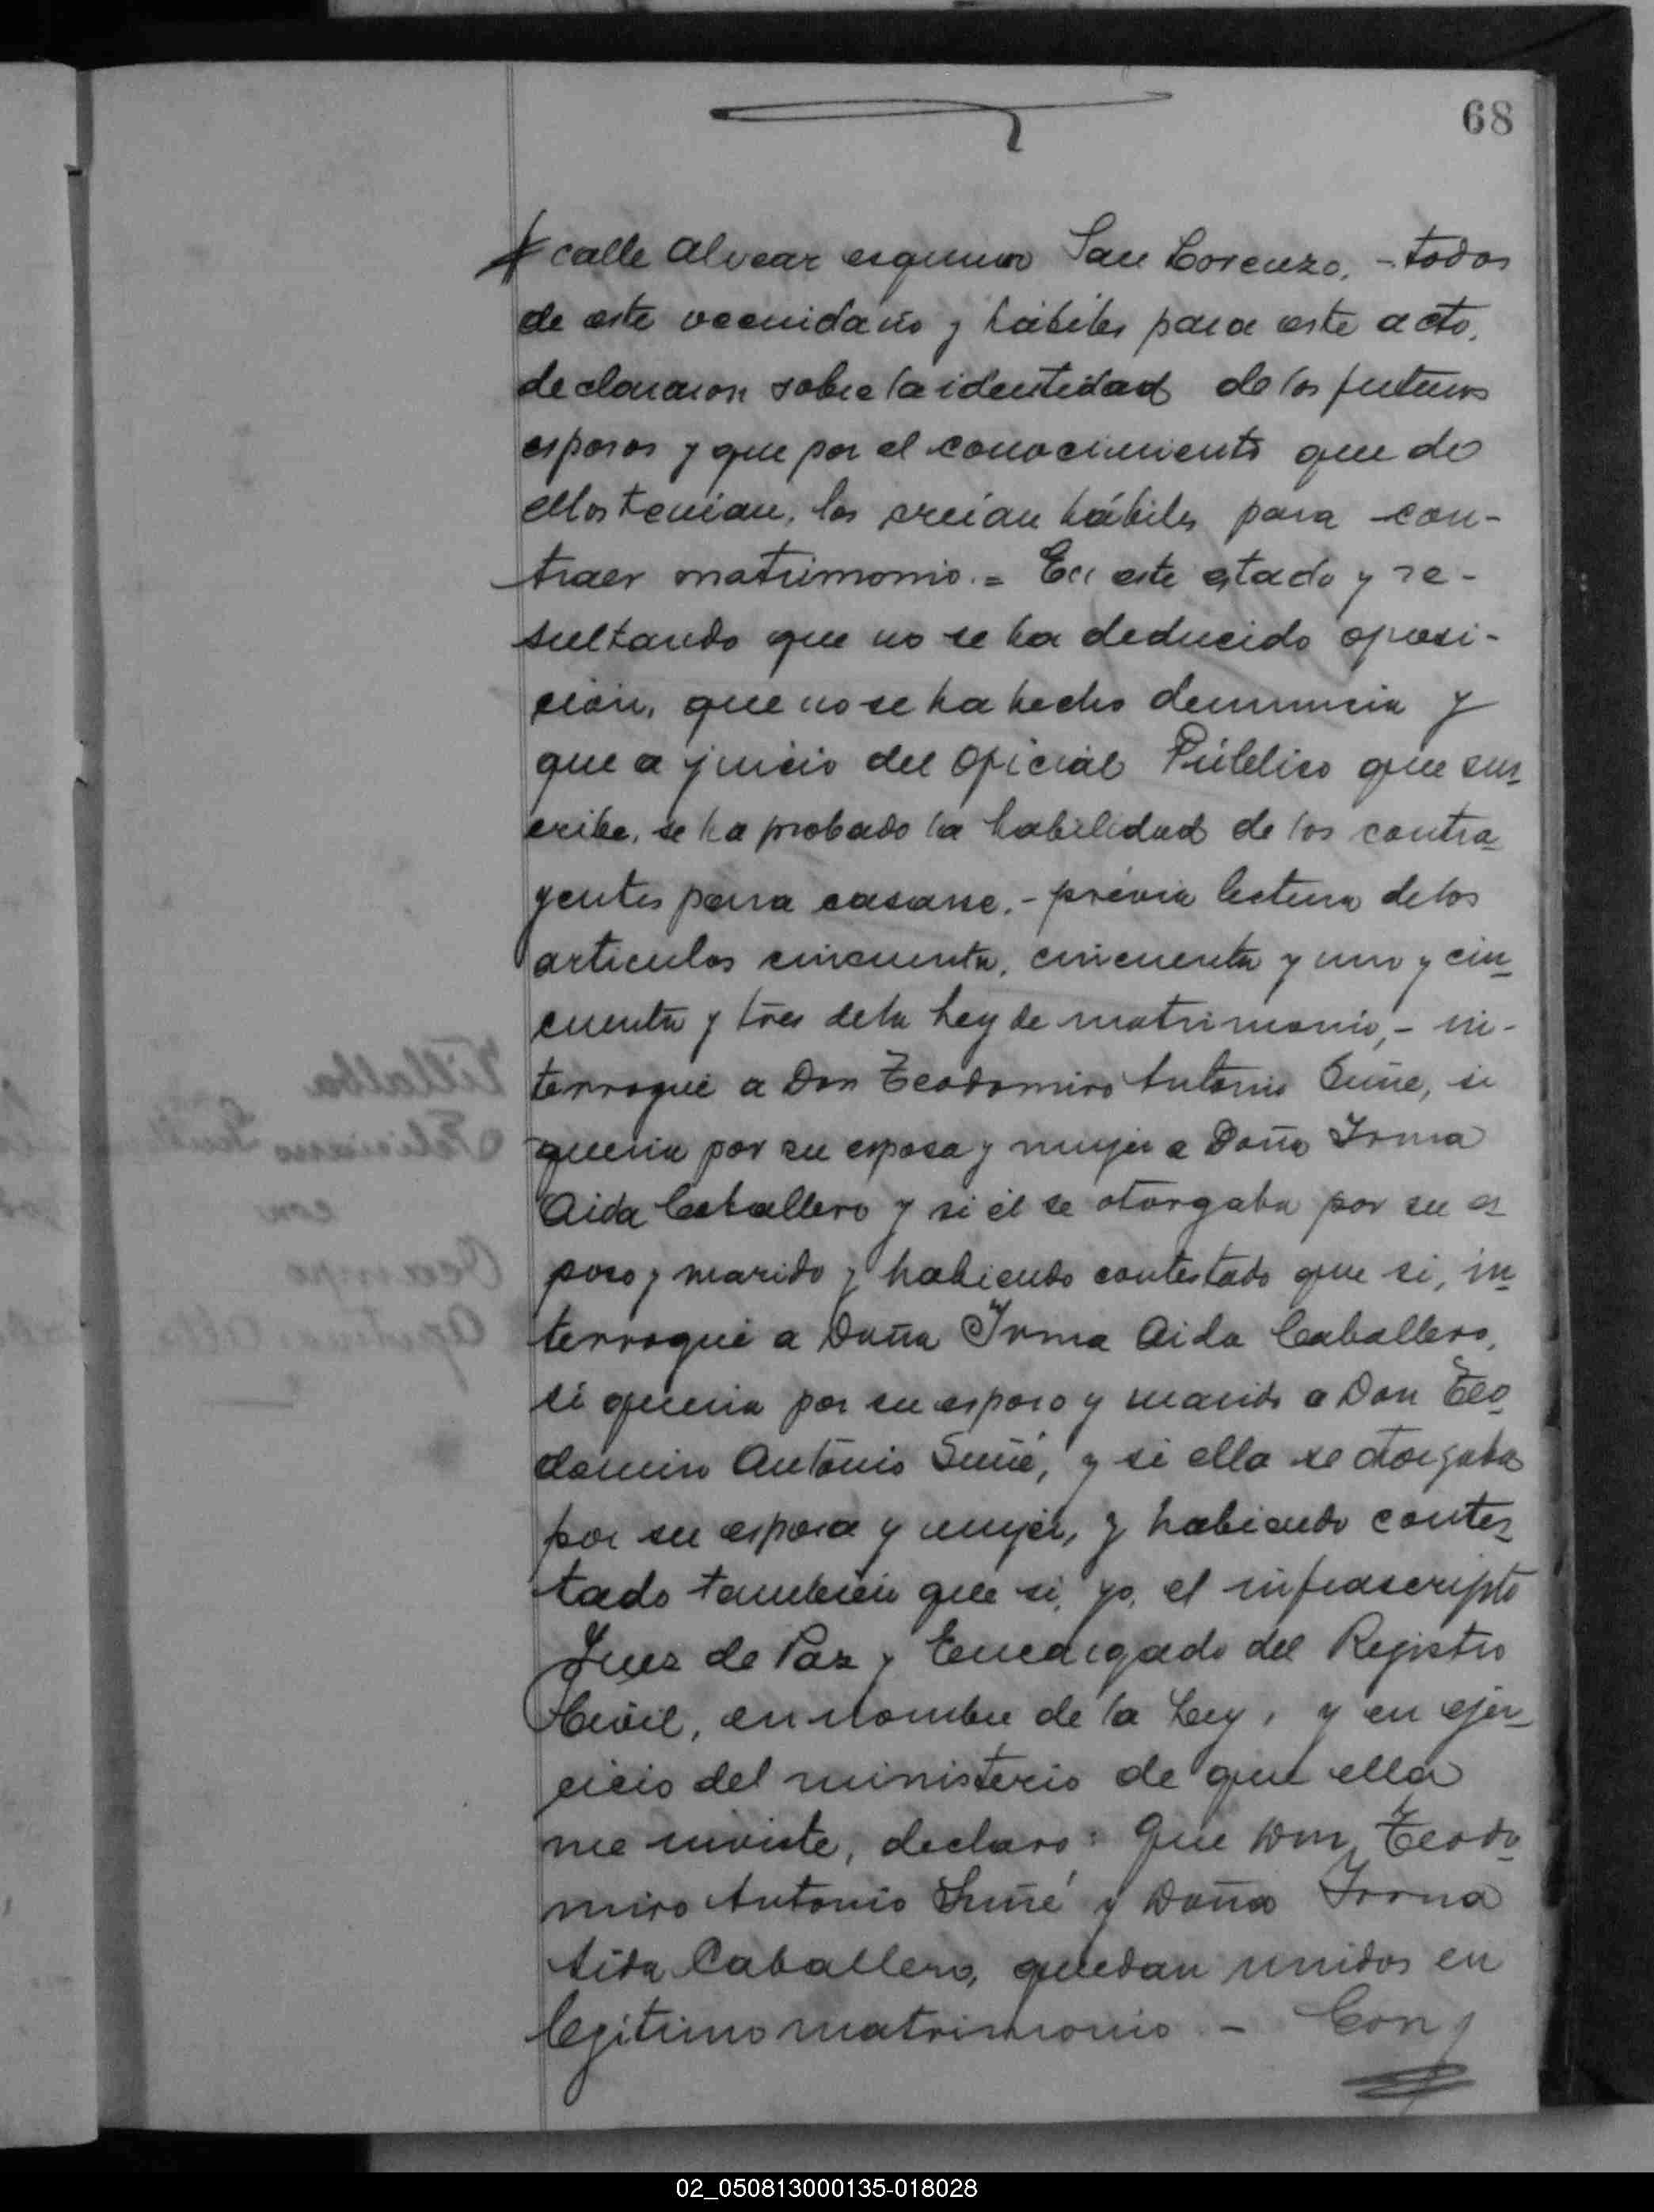 68
calle Alvear esquina San Lorenzo, - todos
de este vecindario y hábiles para este acto,
declararon sobre la identidad de los futuros
esposos y que por el conocimiento que de
ellos tenían, los creían hábiles para con-
traer matrimonio. = En este estado y re-
sultando que no se ha deducido oposi-
ción, que no se ha hecho denuncia y
que a juicio del Oficial Público que sus-
cribe, se ha probado la habilidad de los contra-
yentes para casarse. - prévia lectura de los
articulos cincuenta, cincuenta y uno y cin-
cuenta y tres de la Ley de matrimonio, - in-
terrogué a Don Teodomiro Antonio Suñe, si
queria por su esposa y mujer a Doña Irma
Aida Caballero y si él se otorgaba por su es
poso y marido y habiendo contestado que si, in-
terrogué a Doña Irma Aida Caballero,
si queria por su esposo y marido a Don Teo-
domiro Antonio Suñé, y si ella se otorgaba
por su esposa y mujer, y habiendo contes-
tado también que si, yo, el infrascripto
Juez de Paz y Encargado del Registro
Civil, en nombre de la Ley, y en ejer-
cicio del ministerio de que ella
me inviste, declaro: Que Don Teodo-
miro Antonio Suñé y Doña Irma
Aida Caballero, quedan unidos en
legitimo matrimonio - Con
Villalba
Feliciano
con
Ocampo
02_050813000135-018028